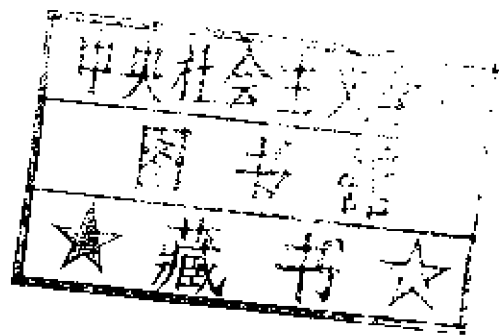 中央社会主义
图书馆
★藏书☆